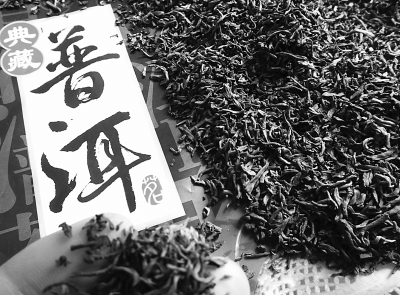 典藏
普洱